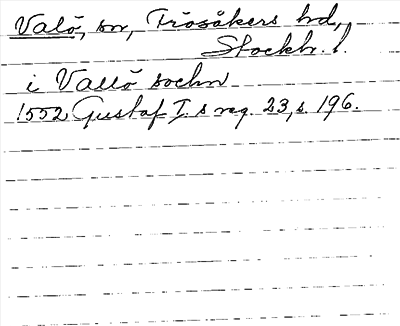 Valö, sn, Frösåkers hd,
Stockh. l.
i Vallö sochn
1552 Gustaf I. s reg. 23, s. 196.